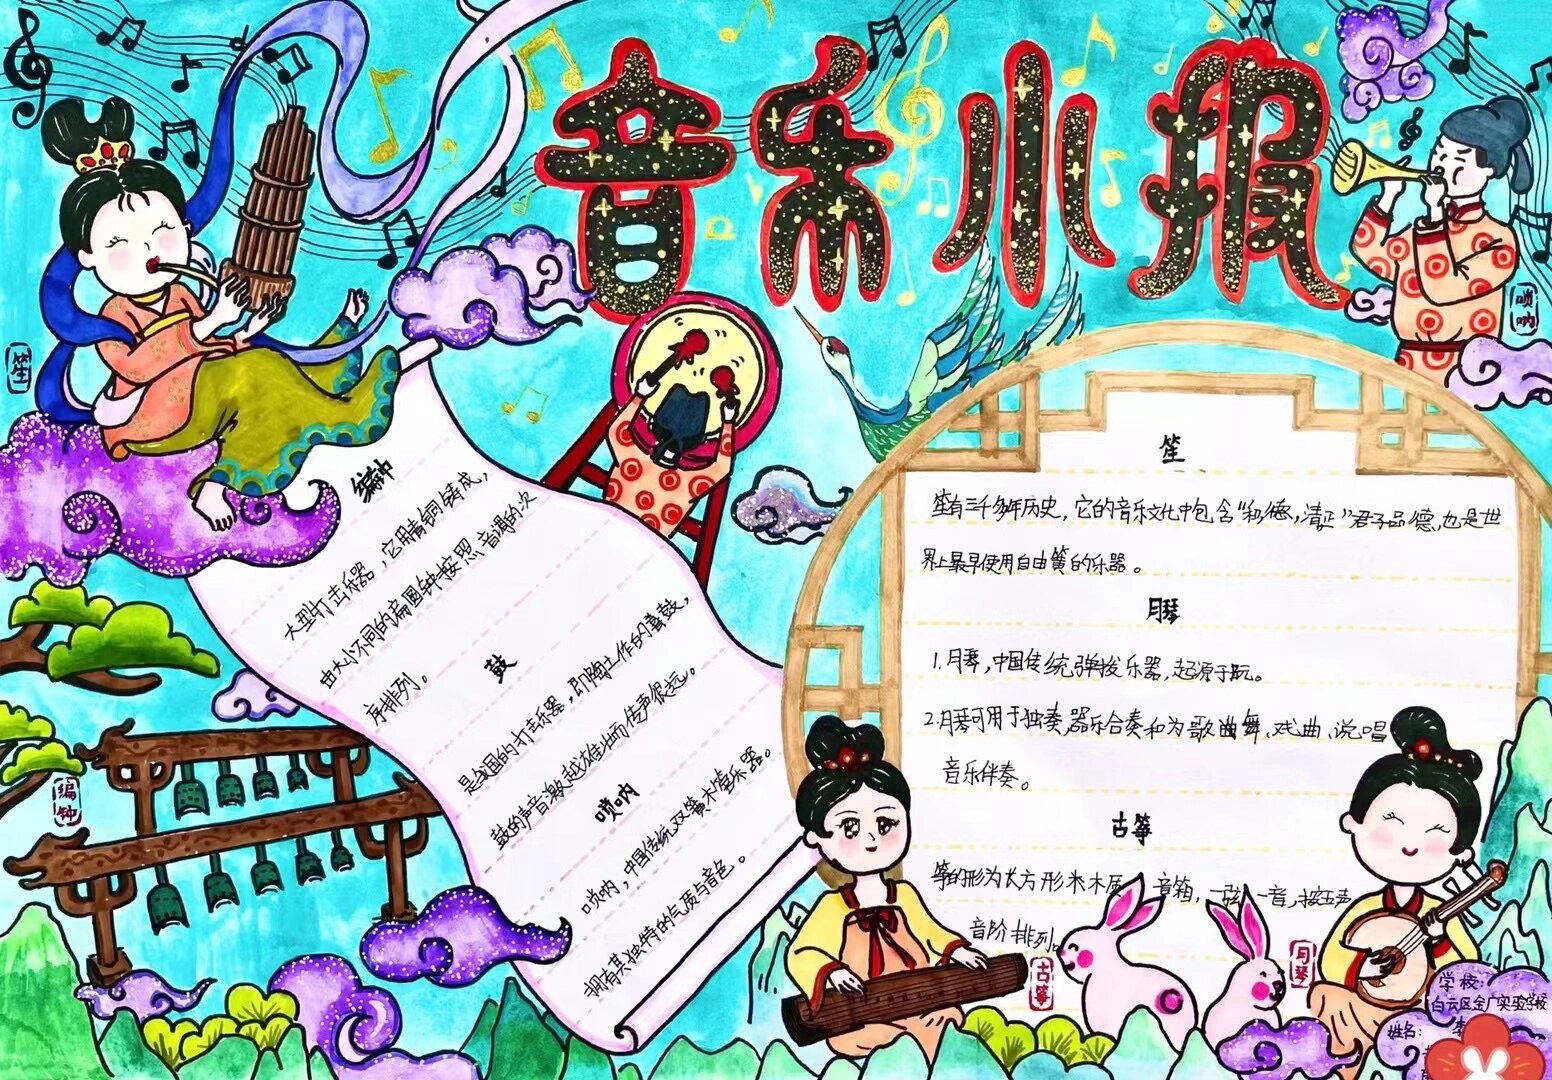 音乐小报
笙
唢呐
编钟
大型打击乐器，它用青铜铸成，
由大小不同的扁圆钟按照音调的次
序排列。
鼓
是我国的打击乐器，即陶土作的鼓，
鼓的声音激越雄壮而传声很远。
唢呐
唢呐，中国传统双簧木管乐器。
拥有其独特的气质与音色。
笙
笙有三千多年历史，它的音乐文化中包含“和、德，清正”君子品德，也是世
界上最早使用自由簧的乐器。
月琴
1.月琴，中国传统弹拨乐器，起源于阮。
2.月琴可用于独奏，器乐合奏和为歌曲舞、戏曲、说唱
音乐伴奏。
古筝
筝的形为长方形木质 音箱，一弦一音，按五声
音阶排列。
编钟
古筝
月琴
学校：
白云区金广实验学校
姓名：
李